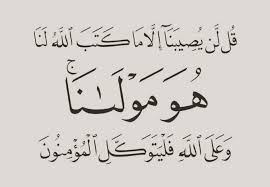 قُل لَّن يُصِيبَنَآ إِلَّا مَا كَتَبَ ٱللَّهُ لَنَا
هُوَ مَوْلَىٰنَا ۚ
وَعَلَى ٱللَّهِ فَلْيَتَوَكَّلِ ٱلْمُؤْمِنُونَ